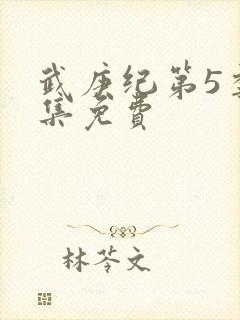 武庚纪第5季
集免费
林苓文